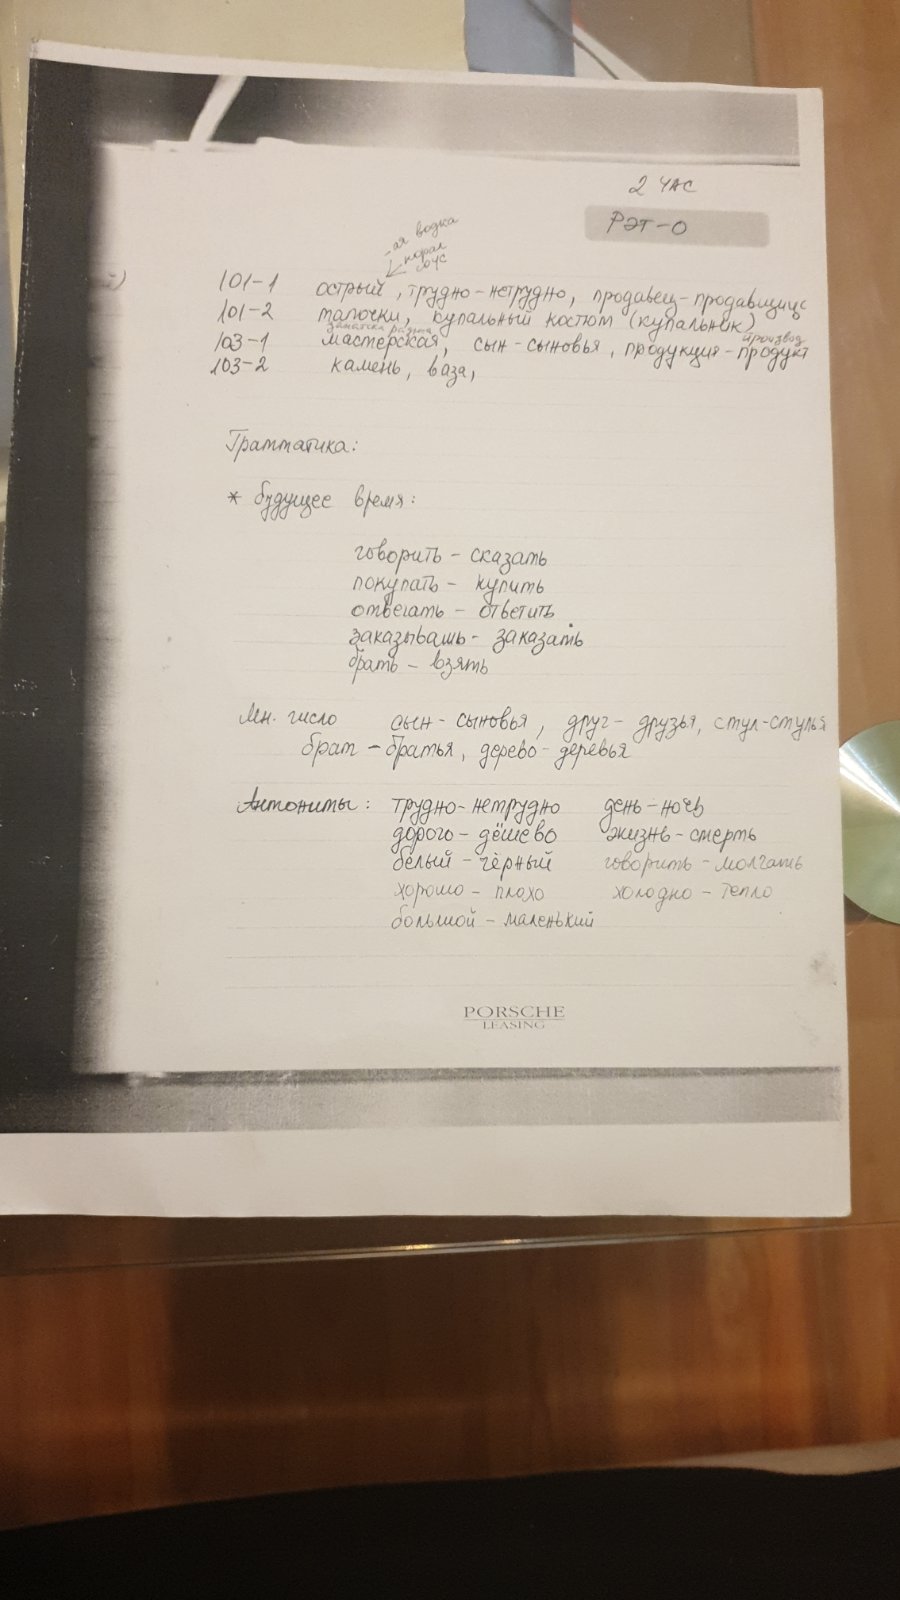 2 ЧАС
РЭТ-О
-ая водка
соус
101-1 острый, трудно-нетрудно, продавец-продавщица
101-2 тапочки, купальный костюм (купальник)
103-1 мастерская, сын-сыновья, продукция-продукт
103-2 камень, ваза,
Грамматика:
* будущее время:
говорить - сказать
покупать - купить
отвечать - ответить
заказывашь - заказать
брать - взять
Мн. число сын-сыновья, друг-друзья, стул-стулья
брат - братья, дерево-деревья
Антонимы: трудно-нетрудно день-ночь
дорого-дёшево жизнь-смерть
белый-чёрный говорить-молчать
хорошо-плохо холодно-тепло
большой-маленький
PORSCHE
LEASING